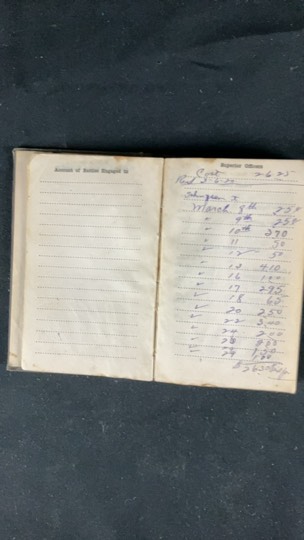 Account of Battles Engaged in
Superior Officers
Cost 26 25
Paid
March 8th 250
" 9th 250
" 10th 270
" 11 50
" 12 50
" 13 410
" 16 100
" 17 295
" 18 65
20 250
22 300
24 200
28
29